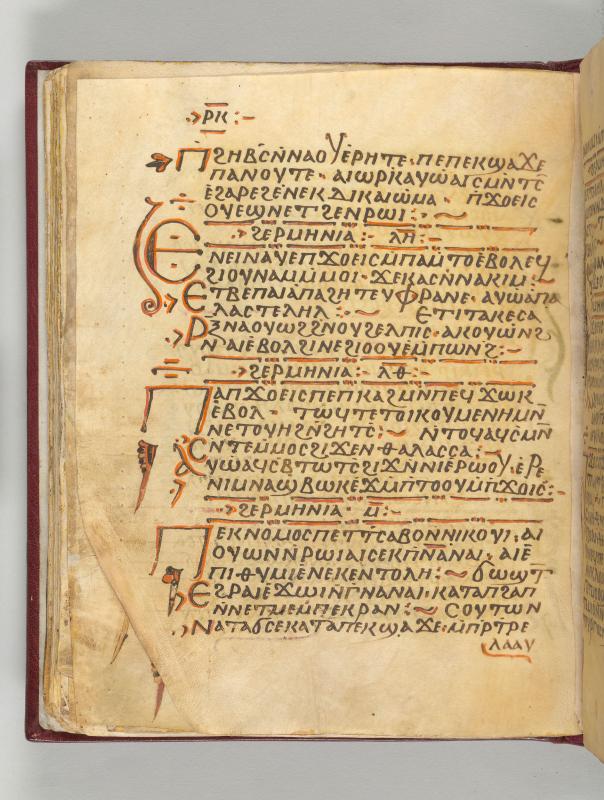 ⲣⲕ
ⲡϩⲏⲃⲥ ⲛⲛⲁⲟⲩⲉⲣⲏⲧⲉ· ⲡⲉ ⲡⲉⲕϣⲁϫⲉ
ⲡⲁⲛⲟⲩⲧⲉ· ⲁⲓⲱⲣⲕ ⲁⲩⲱ ⲁⲓⲥⲙⲛⲧⲥ
ⲉϩⲁⲣⲉϩ ⲉⲛⲉⲕⲇⲓⲕⲁⲓⲱⲙⲁ· ⲡϫⲟⲉⲓⲥ
ⲟⲩⲉϣⲛⲉⲧϩⲉⲛⲣⲱⲓ:~
ϩⲉⲣⲙⲏⲛⲓⲁ:– ⲗⲏ:–
ⲉⲛⲉⲓⲛⲁⲩ ⲉⲡϫⲟⲉⲓⲥ ⲙⲡⲁⲙⲧⲟ ⲉⲃⲟⲗ ⲉϥ
ϩⲓⲟⲩⲛⲁⲙ ⲙⲙⲟⲓ· ϫⲉⲕⲁⲥ ⲛⲛⲁⲕⲓⲙ:–
ⲉⲧⲃⲉ ⲡⲁⲓ ⲁⲡⲁϩⲏⲧ ⲉⲩⲫⲣⲁⲛⲉ· ⲁⲩⲱ ⲁⲡⲁ
ⲗⲁⲥ ⲧⲉⲗⲏⲗ:~ ⲉⲧⲓ ⲧⲁⲕⲉⲥⲁ
ⲣⲝ ⲛⲁⲟⲩⲱϩ ϩⲛⲟⲩϩⲉⲗⲡⲓⲥ· ⲁⲕⲟⲩⲱⲛϩ
ⲛⲁⲓ ⲉⲃⲟⲗ ϩⲓⲛⲉϩⲓⲟⲟⲩⲉ ⲙⲡⲱⲛϩ:–
ϩⲉⲣⲙⲏⲛⲓⲁ:– ⲗⲑ:–
ⲡⲁ ⲡϫⲟⲉⲓⲥ ⲡⲉ ⲡⲕⲁϩ ⲙⲛⲡⲉϥϫⲱⲕ
ⲉⲃⲟⲗ· ⲧⲱϥ ⲧⲉ ⲧⲟⲓⲕⲟⲩⲙⲉⲛⲏ ⲙⲛ
ⲛⲉⲧⲟⲩⲏϩ ⲛϩⲏⲧⲥ:~ ⲛⲧⲟϥ ⲁϥⲥⲙⲛ
ⲥⲛⲧⲉ ⲙⲙⲟⲥ ϩⲓϫⲉⲛ ⲑⲁⲗⲁⲥⲥⲁ:~
ⲁⲩⲱ ⲁϥⲥⲃⲧⲱⲧⲥ ϩⲓϫⲛ ⲛⲓⲉⲣⲱⲟⲩ· ⲉⲣⲉ
ⲛⲓⲙ ⲛⲁϣⲃⲱⲕ ⲉϫⲙⲡⲧⲟⲟⲩ ⲙⲡϫⲟⲓⲥ:–
ϩⲉⲣⲙⲏⲛⲓⲁ· ⲙ:–
ⲡⲉⲕⲛⲟⲙⲟⲥ ⲡⲉⲧⲧⲥⲁⲃⲟ ⲛⲛⲓⲕⲟⲩⲓ· ⲁⲓ
ⲟⲩⲱⲛ ⲛⲣⲱⲓ ⲁⲓⲥⲉⲕ ⲡⲛⲁ ⲛⲁⲓ· ⲁⲓⲉ
ⲡⲓⲑⲩⲙⲓ ⲉⲛⲉⲕⲉⲛⲧⲟⲗⲏ:~ ϭⲱϣⲧ
ⲉϩⲣⲁⲓ ⲉϫⲱⲓ ⲛⲅⲛⲁ ⲛⲁⲓ· ⲕⲁⲧⲁ ⲡϩⲁⲡ
ⲛⲛⲉⲧⲙⲉ ⲙⲡⲉⲕⲣⲁⲛ:~ ⲥⲟⲩⲧⲱⲛ
ⲛⲁⲧⲁϭⲥⲉ ⲕⲁⲧⲁ ⲡⲉⲕϣⲁϫⲉ· ⲙⲡⲣⲧⲣⲉ
ⲗⲁⲁⲩ